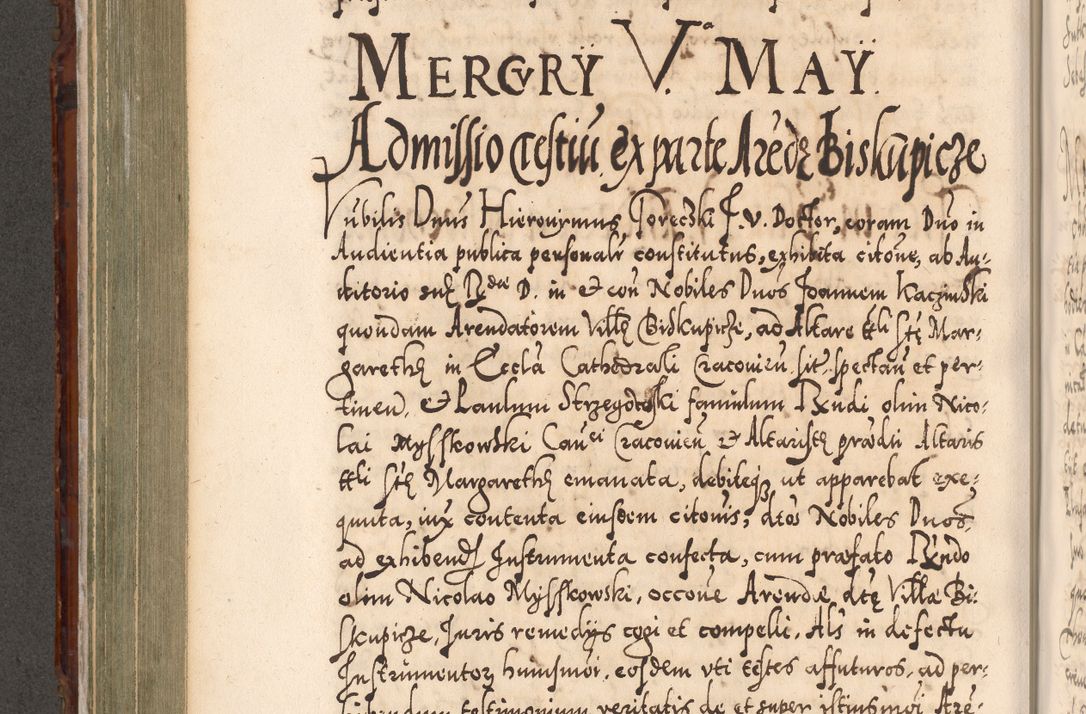 MERCVRŸ V.ᵃ MAŸ.
Admissio testiū ex parte Arēdę Biskupicze
Nubilis Dnus Hieronymus Torecżki J. V. Doctor, coram Dno in
Audientia publica personalr constitutus, exhibita citone, ab Au-
ditorio suę Rdae D. in et con Nobiles Dnos Joannem Kaczinski
quondam Arendatorem Villę Biskupicże, ad Altare ttli stę Mar-
garethę in Eccla Cathedrali Cracovien. sit. spectan et per-
tinen, et Paulum Strzegocki famulum Rxndi olim Nico-
lai Mysskowski Canci Cracovien et Altaristę prædti Altaris
ttli stę Margarethę emanata, debiteqz ut apparebat exe-
quuta, iux contenta eiusdem citonis, dtos Nobiles Dnos,
ad exhibend Instrumenta confecta, cum præfato Rxndo
olim Nicolao Mysskowski, occone Arendæ dtę Villæ Bi-
skupicze, Juris remedijs cogi et compelli, Als in defectu
Instrumentorz huiusmoi, eosdem uti testes affuturos, ad per-
hibendum testimonium veritatis de et super istiusmoi Arē-